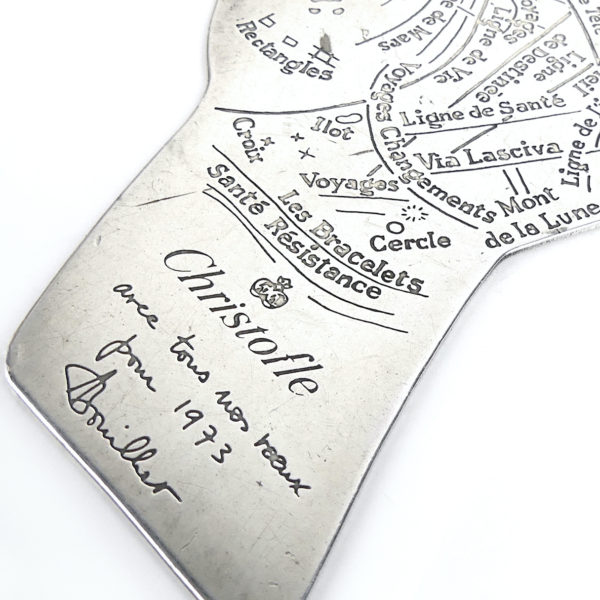 Rectangles
de Mars
Voyages
Ligne de Vie
Ligne
de Destinée
Voyages Changements
Ligne de Santé
Via Lasciva
Ligne de
Mont
de la Lune
Croix
Ilot
Voyages
Cercle
Les Bracelets
Santé Résistance
Christofle
avec tous nos vœux
pour 1973